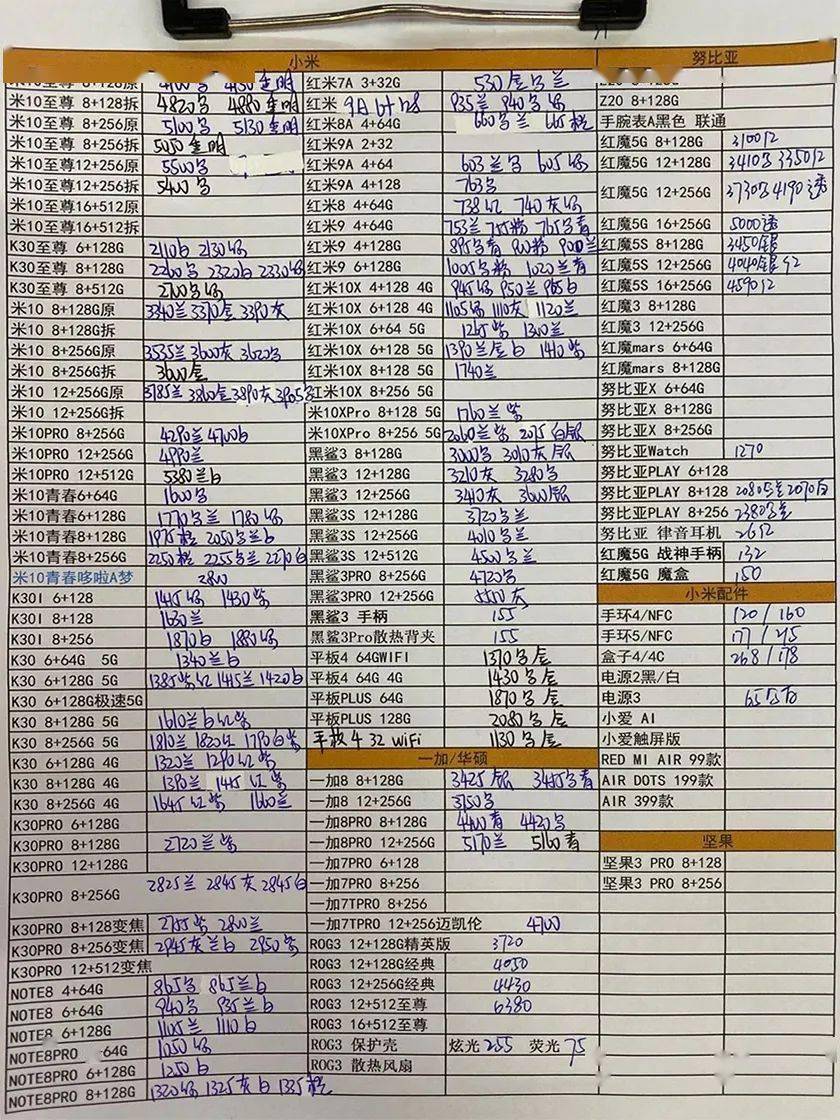 小米
米10至尊 8+128原 4100 4130 透明
米10至尊 8+128拆 4820 4880 透明
米10至尊 8+256原 5100 5130 透明
米10至尊 8+256拆 5050 透明
米10至尊12+256原 5500
米10至尊12+256拆 5400
米10至尊16+512原
米10至尊16+512拆
K30至尊 6+128G 2110白 2130绿
K30至尊 8+128G 2260 2320白 2330绿
K30至尊 8+512G 2700
米10 8+128G原 3340兰 3370金 3390灰
米10 8+128G拆
米10 8+256G原 3535兰 3600灰 3620
米10 8+256G拆 3600金
米10 12+256G原 3785兰 3860金 3890灰 3905
米10 12+256G拆
米10PRO 8+256G 4290兰 4700白
米10PRO 12+256G 4990兰
米10PRO 12+512G 5380兰白
米10青春6+64G 1600
米10青春6+128G 1770 兰 1780
米10青春8+128G 1975桃 2050 兰白
米10青春8+256G 2250桃 2255 兰 2270白
米10青春哆啦A梦 2800
K30I 6+128 1415 1430紫
K30I 8+128 1630兰
K30I 8+256 1870白 1880
K30 6+64G 5G 1340兰白
K30 6+128G 5G 1385紫红 1415兰 1420白
K30 6+128G极速5G
K30 8+128G 5G 1610兰白红紫
K30 8+256G 5G 1810兰 1820红 1790白紫
K30 6+128G 4G 1320兰 1290红紫
K30 8+128G 4G 1390兰 1415红紫
K30 8+256G 4G 1645红紫 1660兰
K30PRO 6+128G
K30PRO 8+128G 2720兰紫
K30PRO 12+128G
K30PRO 8+256G 2825兰 2845灰 2845白
K30PRO 8+128变焦 2755紫 2800兰
K30PRO 8+256变焦 2945灰兰白 2950紫
K30PRO 12+512变焦
NOTE8 4+64G 865 865兰白
NOTE8 6+64G 940 935兰白
NOTE8 6+128G 1105兰 1110白
NOTE8PRO 64G 1050
NOTE8PRO 6+128G 1250白
NOTE8PRO 8+128G 1320 1325灰白 1335桃
红米7A 3+32G 530金 兰
红米 9A 6+128 935兰 940
红米8A 4+64G 660 兰 665桃
红米9A 2+32
红米9A 4+64 603兰 605
红米9A 4+128 763
红米8 4+64G 738红 740灰
红米9 4+64G 753兰 755粉 765 青
红米9 4+128G 895 青 900粉 900兰
红米9 6+128G 1005 粉 1020兰青
红米10X 4+128 4G 945 950兰 955白
红米10X 6+128 4G 1105 1110灰 1120兰
红米10X 6+64 5G 1265紫 1300兰
红米10X 6+128 5G 1390兰金白 1410紫
红米10X 8+128 5G 1740兰
红米10X 8+256 5G
米10XPro 8+128 5G 1760兰紫
米10XPro 8+256 5G 2060兰紫 2075白银
黑鲨3 8+128G 3000 3010灰银
黑鲨3 12+128G 3210灰 3280
黑鲨3 12+256G 3410灰 3600银
黑鲨3S 12+128G 3720 兰
黑鲨3S 12+256G 4010 兰
黑鲨3S 12+512G 4500 兰
黑鲨3PRO 8+256G 4720
黑鲨3PRO 12+256G 5500灰
黑鲨3 手柄 155
黑鲨3Pro散热背夹 155
平板4 64GWIFI 1370 金
平板4 64G 4G 1430 金
平板PLUS 64G 1870 金
平板PLUS 128G 2080 金
平板 4 32 WiFi 1130 金
一加/华硕
一加8 8+128G 3425银 3455 青
一加8 12+256G 3750
一加8PRO 8+128G 4400青 4420
一加8PRO 12+256G 5170兰 5160青
一加7PRO 6+128
一加7PRO 8+256
一加7TPRO 8+256
一加7TPRO 12+256迈凯伦 4700
ROG3 12+128G精英版 3720
ROG3 12+128G经典 4050
ROG3 12+256G经典 4430
ROG3 12+512至尊 6380
ROG3 16+512至尊
ROG3 保护壳 炫光255 荧光75
ROG3 散热风扇
努比亚
Z20 8+128G
手腕表A黑色 联通
红魔5G 8+128G 3100红
红魔5G 12+128G 3410 3350红
红魔5G 12+256G 3730 4190透
红魔5G 16+256G 5000透
红魔5S 8+128G 3450银
红魔5S 12+256G 4040银红
红魔5S 16+256G 4590红
红魔3 8+128G
红魔3 12+256G
红魔mars 6+64G
红魔mars 8+128G
努比亚X 6+64G
努比亚X 8+128G
努比亚X 8+256G
努比亚Watch 1270
努比亚PLAY 6+128
努比亚PLAY 8+128 2080 兰 2070白
努比亚PLAY 8+256 2380 兰
努比亚 律音耳机 262
红魔5G 战神手柄 132
红魔5G 魔盒 150
小米配件
手环4/NFC 120/160
手环5/NFC 177/215
盒子4/4C 268/178
电源2黑/白
电源3 65 白
小爱 AI
小爱触屏版
RED MI AIR 99款
AIR DOTS 199款
AIR 399款
坚果
坚果3 PRO 8+128
坚果3 PRO 8+256